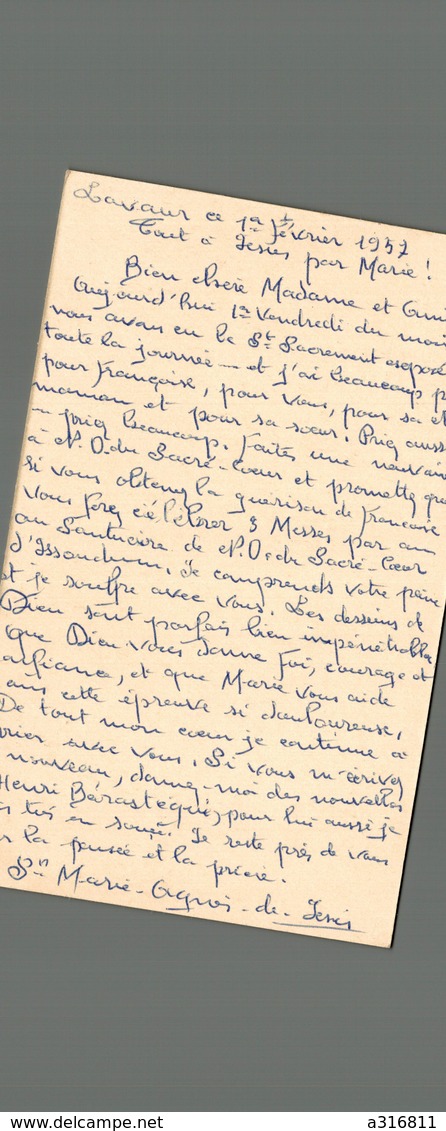 Lavaur ce 1er février 1957
Tout à Jésus par Marie !
Bien chère Madame et
Aujourd'hui 1er Vendredi du moi
nous avons eu le St Sacrement exposé
toute la journée — et j'ai beaucoup p
pour Françoise, pour vous, pour sa
maman et pour sa sœur. Priez aussi
— priez beaucoup. Faites une neuvain
à N.D. du Sacré-Cœur et promettez que
si vous obtenez la guérison de Françoise
vous ferez célébrer 3 Messes par an
au Sanctuaire de N.D. du Sacré-Cœur
d'Issoudun. Je comprends votre peine
et je souffre avec vous. Les desseins de
Dieu sont parfois bien impénétrables
que Dieu vous donne foi, courage et
onfiance, et que Marie vous aide
ans cette épreuve si douloureuse,
De tout mon cœur je continue à
prier avec vous. Si vous m'écrivez
nouveau, donnez-moi des nouvelles
Henri Bérastégui, pour lui aussi je
suis en souci. Je reste près de vous
r la pensée et la prière.
Sr Marie-Agnès-de-Jésus
delcampe.net
a316811